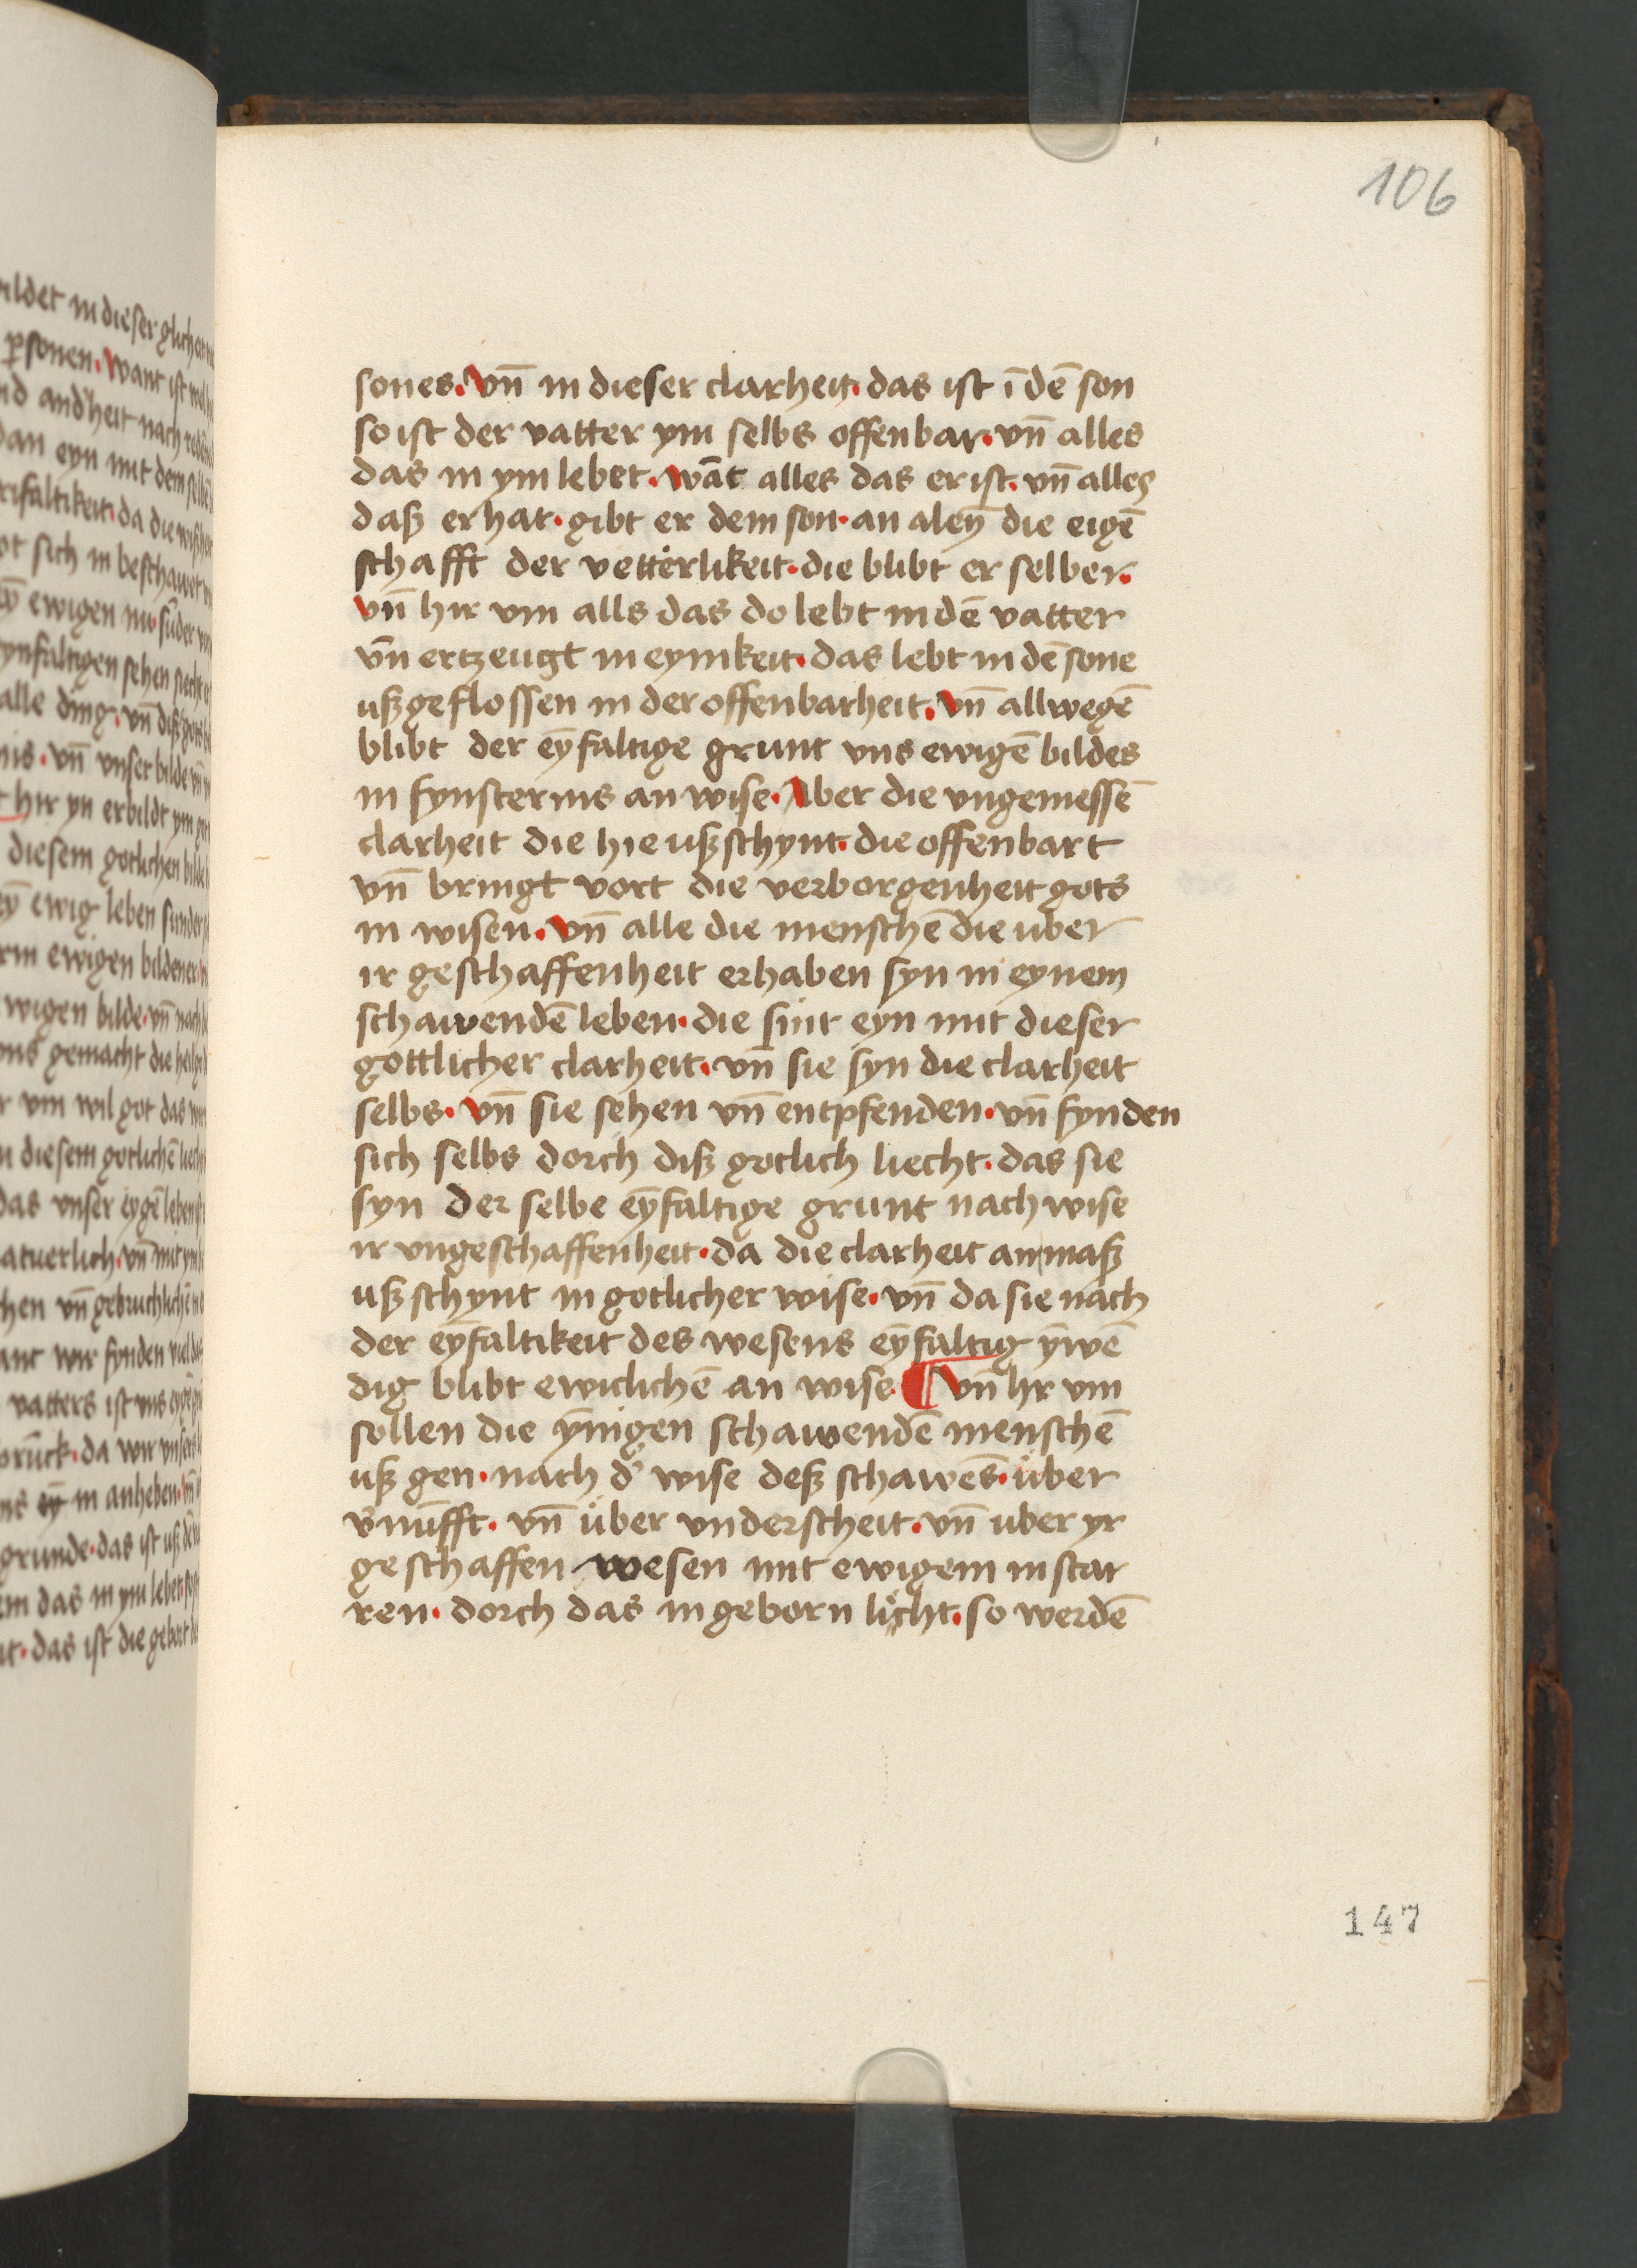 106
sones. vn̄ in dieser clarheit. das ist ī dē son
so ist der vatter ym selbs offenbar. vn̄ alles
das in ym lebet. wāt alles das er ist. vn̄ alles
daß er hat. gibt er dem son. an aleyn̄ die eigē
schafft der vetterlikeit. die blibt er selber.
vn̄ hir vm alls das do lebt in dē vatter
vn̄ ertzeugt in eynikeit. das lebt in dē sone
ußgeflossen in der offenbarheit. vn̄ allwegē
blibt der eȳfaltige grunt vns ewigē bildes
in fynsternis an wise. Aber die vngemessē
clarheit die hie ußschynt. die offenbart
vn̄ bringt vort die verborgenheit gots
in wisen. vn̄ alle die menschē die uber
ir geschaffenheit erhaben syn in eynem
schawendē leben. die sint eyn mit dieser
gottlicher clarheit. vn̄ sie syn die clarheit
selbs. vn̄ sie sehen vn̄ entpfenden. vn̄ fynden
sich selbs dorch diß gotlich liecht. das sie
syn der selbe eȳfaltige grunt nach wise
ir vngeschaffenheit. da die clarheit an maß
ußschynt in gotlicher wise. vn̄ da sie nach
der eȳfaltikeit des wesens eȳfaltig ȳwē
dig blibt ewiclichē an wise. ¶ vn̄ hr vm
sollen die ȳnigen schawendē menschē
uß gen. nach d' wise deß schawēs. über
v'nūfft. vn̄ über vnderscheit. vn̄ uber yr
geschaffen wesen mit ewigem instar
ren. dorch das ingeborn licht. so werdē
147